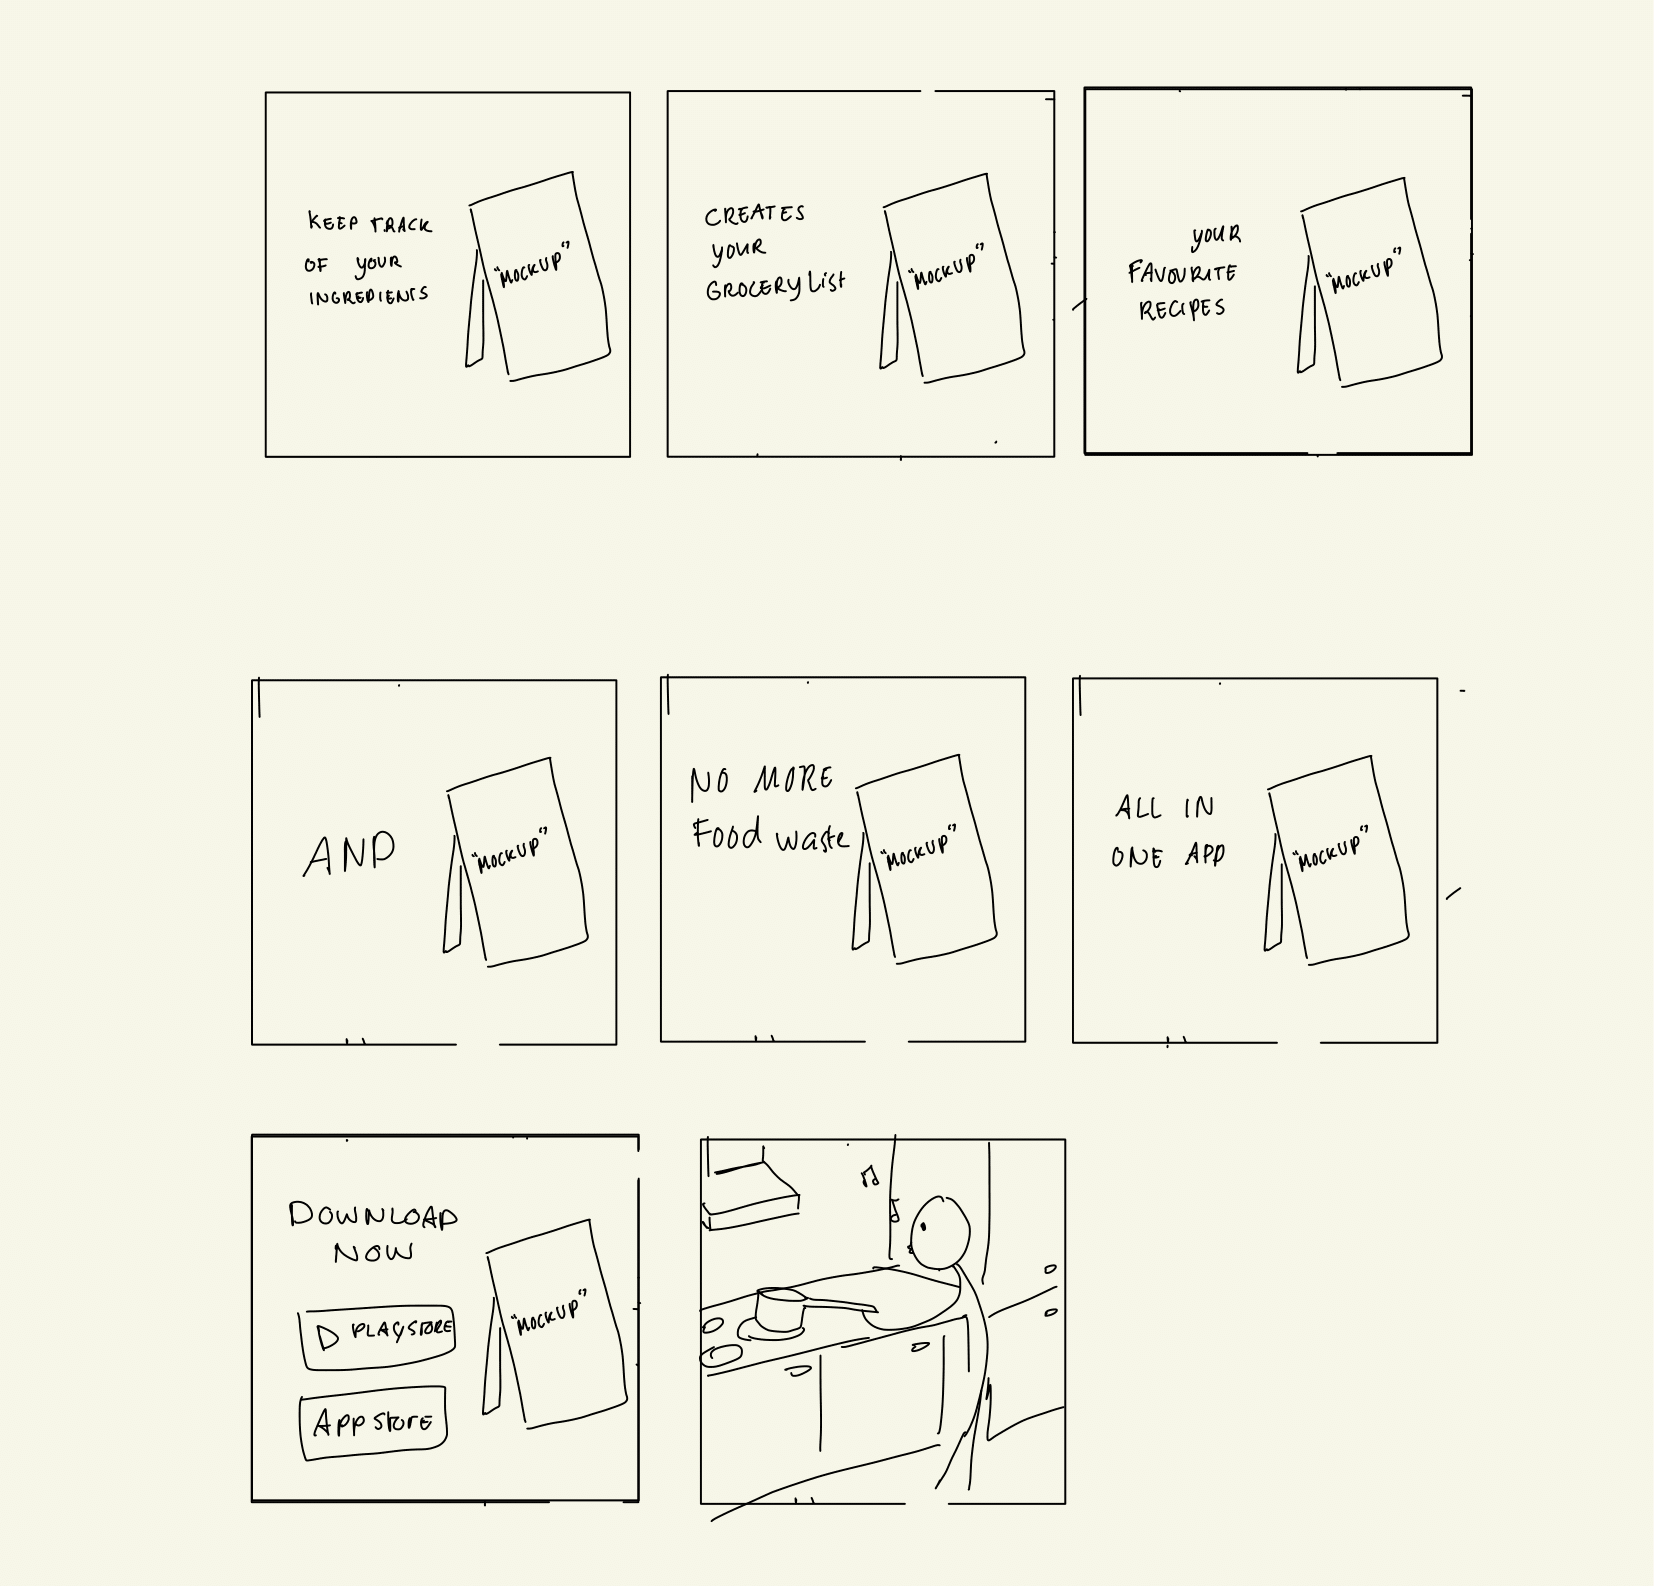 KEEP TRACK
OF YOUR
INGREDIENTS
"MOCKUP"
CREATES
YOUR
GROCERY List
"MOCKUP"
YOUR
FAVOURITE
RECIPES
"MOCKUP"
AND
"MOCKUP"
NO MORE
Food waste
"MOCKUP"
ALL IN
ONE APP
"MOCKUP"
DOWNLOAD
NOW
PLAYSTORE
APP Store
"MOCKUP"